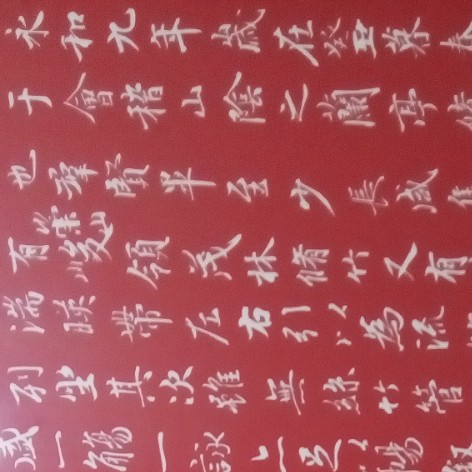 永和九年歲在癸丑暮
于會稽山陰之蘭亭
也群賢畢至少長咸
有崇山峻領茂林脩竹又有
湍暎帶左右引以為流
列坐其次雖無絲竹管
盛一觴一詠亦足以暢